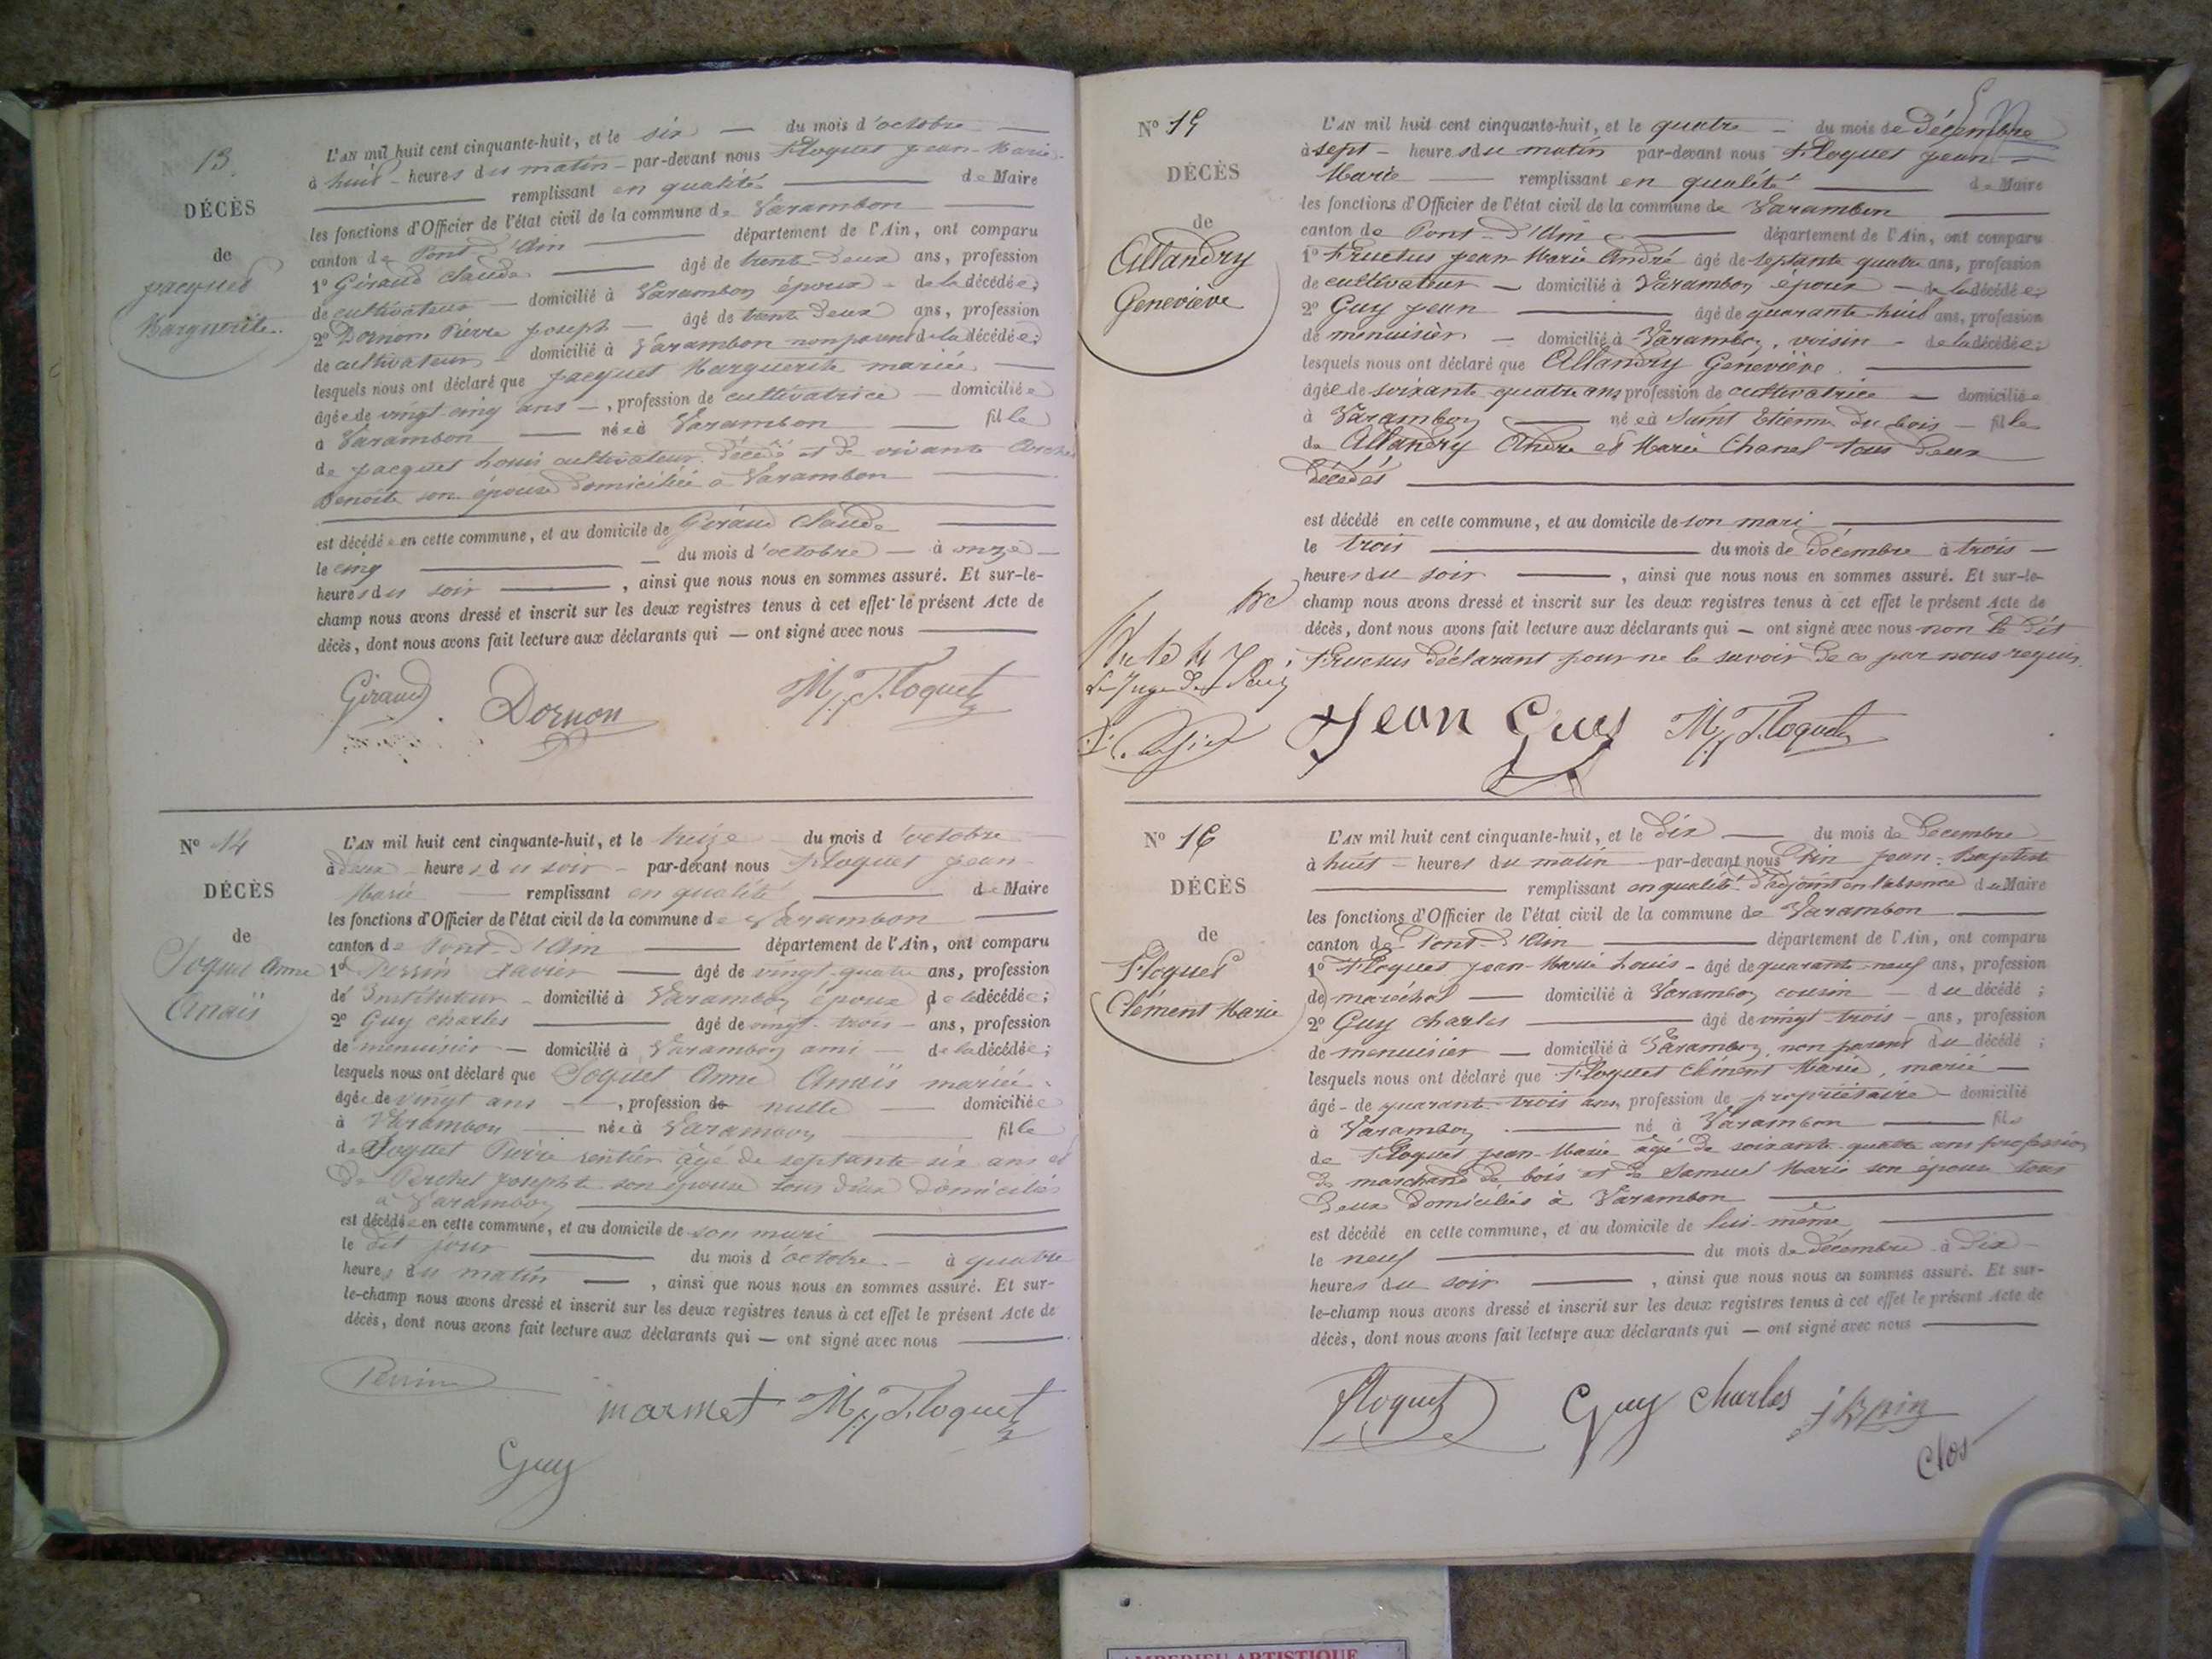 13.
DÉCÈS
de
Jacquet
Marguerite.
L'AN mil huit cent cinquante-huit, et le six — du mois d'octobre —
à huit - heures du matin - par-devant nous Floquet Jean-Marie
— remplissant en qualité — de Maire
les fonctions d'Officier de l'état civil de la commune de Varambon —
canton de Pont-d'Ain — département de l'Ain, ont comparu
1º Giraud Claude — âgé de trente-deux ans, profession
de cultivateur — domicilié à Varambon époux - de la décédée;
2º Dornon Pierre Joseph — âgé de trente deux ans, profession
de cultivateur - domicilié à Varambon non parent de la décédée;
lesquels nous ont déclaré que Jacquet Marguerite mariée —
âgée de vingt-cinq ans —, profession de cultivatrice — domiciliée
à Varambon — née à Varambon — fille
de Jacquet Louis cultivateur décédé et de vivante
Benoite son épouse domiciliée à Varambon —
est décédée en cette commune, et au domicile de Giraud Claude —
le cinq — du mois d'octobre — à onze —
heures du soir —, ainsi que nous nous en sommes assuré. Et sur-le-
champ nous avons dressé et inscrit sur les deux registres tenus à cet effet le présent Acte de
décès, dont nous avons fait lecture aux déclarants qui — ont signé avec nous —
Giraud Dornon M. Floquet
Nº 14
DÉCÈS
de
Soquet Anne
Anaïs
L'AN mil huit cent cinquante-huit, et le treize du mois d'octobre —
à deux heures du soir - par-devant nous Floquet Jean
Marie — remplissant en qualité — de Maire
les fonctions d'Officier de l'état civil de la commune de Varambon —
canton de Pont-d'Ain — département de l'Ain, ont comparu
1º Perrin Xavier — âgé de vingt-quatre ans, profession
de Instituteur - domicilié à Varambon époux de la décédée;
2º Guy Charles — âgé de vingt-trois - ans, profession
de menuisier — domicilié à Varambon ami — de la décédée;
lesquels nous ont déclaré que Soquet Anne Anaïs mariée
âgée de vingt ans —, profession de nulle — domiciliée
à Varambon — née à Varambon — fille
de Soquet Pierre rentier âgé de septante six ans et
de Perchet Josephte son épouse tous deux domiciliés
à Varambon —
est décédée en cette commune, et au domicile de son mari —
le dit jour — du mois d'octobre - à quatre
heures du matin —, ainsi que nous nous en sommes assuré. Et sur-
le-champ nous avons dressé et inscrit sur les deux registres tenus à cet effet le présent Acte de
décès, dont nous avons fait lecture aux déclarants qui — ont signé avec nous —
Perrin
marmet M. Floquet
Guy
Nº 15
DÉCÈS
de
Allandry
Geneviève
L'AN mil huit cent cinquante-huit, et le quatre — du mois de Décembre
à sept - heures du matin par-devant nous Floquet Jean -
Marie — remplissant en qualité — de Maire
les fonctions d'Officier de l'état civil de la commune de Varambon —
canton de Pont-d'Ain — département de l'Ain, ont comparu
1º Fructus Jean Marie André âgé de septante quatre ans, profession
de cultivateur — domicilié à Varambon époux — de la décédée;
2º Guy Jean — âgé de quarante-huit ans, profession
de menuisier — domicilié à Varambon, voisin - de la décédée;
lesquels nous ont déclaré que Allandry Geneviève. —
âgée de soixante quatre ans profession de cultivatrice — domiciliée
à Varambon — née à Saint Etienne du bois — fille
de Allandry André et Marie Chanel tous deux
décédés —
est décédé en cette commune, et au domicile de son mari —
le trois — du mois de décembre à trois —
heures du soir —, ainsi que nous nous en sommes assuré. Et sur-le-
champ nous avons dressé et inscrit sur les deux registres tenus à cet effet le présent Acte de
décès, dont nous avons fait lecture aux déclarants qui — ont signé avec nous non le dit
Fructus déclarant pour ne le savoir de ce par nous requis
Le Juge de Paix
Jean Guy M. Floquet
Nº 16
DÉCÈS
de
Floquet
Clément Marie
L'AN mil huit cent cinquante-huit, et le dix — du mois de Decembre
à huit - heures du matin — par-devant nous Pin Jean-Baptiste
— remplissant en qualité d'adjoint en l'absence du Maire
les fonctions d'Officier de l'état civil de la commune de Varambon —
canton de Pont-d'Ain — département de l'Ain, ont comparu
1º Floquet Jean-Marie Louis - âgé de quarante-neuf ans, profession
de maréchal — domicilié à Varambon cousin — du décédé;
2º Guy Charles — âgé de vingt-trois - ans, profession
de menuisier — domicilié à Varambon, non parent du décédé;
lesquels nous ont déclaré que Floquet Clément Marie, marié —
âgé - de quarante-trois ans, profession de propriétaire - domicilié
à Varambon — né à Varambon — fils
de Floquet Jean-Marie âgé de soixante-quatre ans profession
de marchand de bois et de Samuel Marie son épouse tous
deux domiciliés à Varambon —
est décédé en cette commune, et au domicile de lui-même —
le neuf — du mois de décembre à dix -
heures du soir —, ainsi que nous nous en sommes assuré. Et sur-
le-champ nous avons dressé et inscrit sur les deux registres tenus à cet effet le présent Acte de
décès, dont nous avons fait lecture aux déclarants qui — ont signé avec nous —
Floquet Guy Charles J B Pin
Clos
AMBERIEU ARTISTIQUE